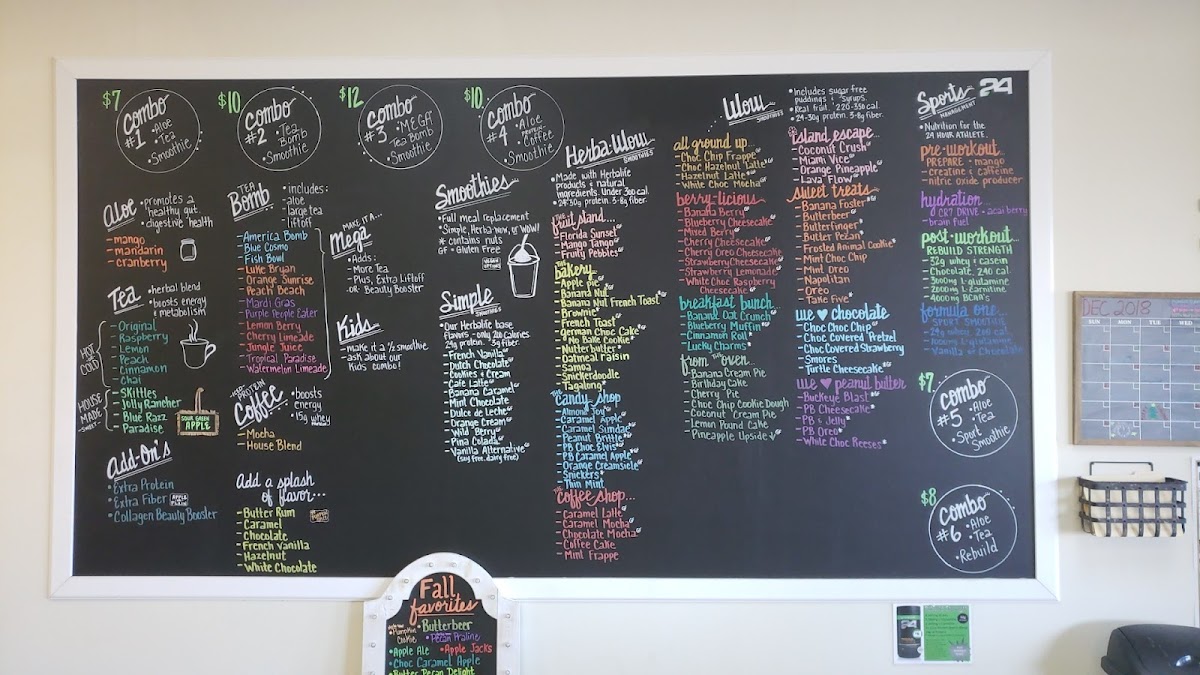 $7
combo
#1
• Aloe
• Tea
• Smoothie
$10
combo
#2
• Tea
Bomb
• Smoothie
$12
combo
#3
• MEGA
Tea Bomb
• Smoothie
$10
combo
#4
• Aloe
• Protein
Coffee
• Smoothie
Aloe
• promotes a
healthy gut
• digestive health
- mango
- mandarin
- cranberry
Tea
• herbal blend
• boosts energy
& metabolism
HOT OR COLD
- Original
- Raspberry
- Lemon
- Peach
- Cinnamon
- Chai
HOUSE MADE
- SWEET -
- Skittles
- Jolly Rancher
- Blue Razz
- Paradise
SOUR GREEN
APPLE
Add-On's
• Extra Protein
• Extra Fiber
• Collagen Beauty Booster
TEA
Bomb
• includes:
- aloe
- large tea
- liftoff
- America Bomb
- Blue Cosmo
- Fish Bowl
- Luke Bryan
- Orange Sunrise
- Peach Beach
- Mardi Gras
- Purple People Eater
- Lemon Berry
- Cherry Limeade
- Jungle Juice
- Tropical Paradise
- Watermelon Limeade
ICED PROTEIN
Coffee
• boosts
energy
• 15g whey
- Mocha
- House Blend
Add a splash
of flavor...
- Butter Rum
- Caramel
- Chocolate
- French Vanilla
- Hazelnut
- White Chocolate
MAKE IT A...
Mega
• Adds:
- More Tea
- Plus, Extra Liftoff
-OR- Beauty Booster
Kids
- make it a 1/2 smoothie
- ask about our
Kids combo!
Smoothies
• Full meal replacement
• Simple, Herba-wow, or WOW!
* contains nuts
GF = Gluten Free
Simple
SMOOTHIES
• Our Herbalife base
flavors - only 200 calories
• 24g protein. 3g fiber.
- French Vanilla
- Dutch Chocolate
- Cookies & Cream
- Cafe Latte
- Banana Caramel
- Mint Chocolate
- Dulce de Leche
- Orange Cream
- Wild Berry
- Pina Colada
- Vanilla Alternative
(soy free, dairy free)
Herba-Wow
SMOOTHIES
• Made with Herbalife
products & natural
ingredients. Under 300 cal.
• 24-30g protein. 3-8g fiber.
THE
fruit stand...
- Florida Sunset
- Mango Tango
- Fruity Pebbles
THE
bakery...
- Apple pie
- Banana Nut
- Banana Nut French Toast
- Brownie
- French Toast
- German Choc Cake
- *No Bake Cookie
- Nutter butter
- Oatmeal Raisin
- Samoa
- Snickerdoodle
- Tagalong
THE
Candy shop
- Almond Joy
- Caramel Apple
- Caramel Sundae
- Peanut Brittle
- PB Choc Elvis
- PB Caramel Apple
- Orange Creamsicle
- Snickers
- Thin Mint
THE
Coffee shop...
- Caramel Latte
- Caramel Mocha
- Chocolate Mocha
- Coffee Cake
- Mint Frappe
Wow
SMOOTHIES
• Includes sugar free
puddings & syrups.
• Real fruit. 220-350 cal.
• 24-30g protein. 3-8g fiber.
all ground up...
- Choc Chip Frappe
- Choc Hazelnut Latte
- Hazelnut Latte
- White Choc Mocha
berry-licious
- Banana Berry
- Blueberry Cheesecake
- Mixed Berry
- Cherry Cheesecake
- Cherry Oreo Cheesecake
- Strawberry Cheesecake
- Strawberry Lemonade
- White Choc Raspberry
Cheesecake
breakfast bunch
- Banana Oat Crunch
- Blueberry Muffin
- Cinnamon Roll
- Lucky Charms
from the oven...
- Banana Cream Pie
- Birthday Cake
- Cherry Pie
- Choc Chip Cookie Dough
- Coconut Cream Pie
- Lemon Pound Cake
- Pineapple Upside ↓
island escape...
- Coconut Crush
- Miami Vice
- Orange Pineapple
- Lava Flow
sweet treats...
- Banana Foster
- Butterbeer
- Butterfinger
- Butter Pecan
- Frosted Animal Cookie
- Mint Choc Chip
- Mint Oreo
- Napolitan
- Oreo
- Take Five
we ♥ chocolate
- Choc Choc Chip
- Choc Covered Pretzel
- Choc Covered Strawberry
- Smores
- Turtle Cheesecake
we ♥ peanut butter
- Buckeye Blast
- PB Cheesecake
- PB & Jelly
- PB Oreo
- White Choc Reeses
Sports
MANAGEMENT
24
• Nutrition for the
24 HOUR ATHLETE.
pre-workout...
PREPARE - mango
- creatine & caffeine
- nitric oxide producer
hydration...
- CR7 DRIVE - acai berry
- brain fuel
post-workout...
REBUILD STRENGTH
- 32g whey & casein
- Chocolate, 240 cal.
- 3000mg L-glutamine
- 2000mg L-carnitine
- 4000mg BCAA's
formula one...
SPORT SMOOTHIE
- 1000mg L-glutamine
- Vanilla or Chocolate
$7
combo
#5
• Aloe
• Tea
• Sport
Smoothie
$8
combo
#6
• Aloe
• Tea
• Rebuild
DEC 2018
SUN
MON
TUE
WED
Fall
favorites
• Pumpkin
Cookie
• Butterbeer
• Pecan Praline
• Apple Ale
• Apple Jacks
• Choc Caramel Apple
• Butter Pecan Delight